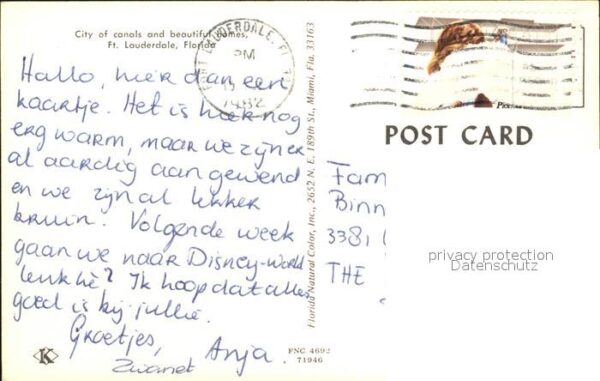 City of canals and beautiful homes,
Ft. Lauderdale, Florida
Hallo, hier dan een
kaartje. Het is hier nog
erg warm, maar we zijn er
al aardig aan gewend
en we zijn al lekker
bruin. Volgende week
gaan we naar Disney-world
leuk hè? Ik hoop dat alles
goed is bij jullie.
Groetjes,
Zwanet Anja.
K
FORT LAUDERDALE, FL
PM
1982
Florida Natural Color, Inc., 2652 N. E. 189th St., Miami, Fla. 33163
FNC. 4692
71946
POST CARD
Fam
Binn
3381
THE
privacy protection
Datenschutz